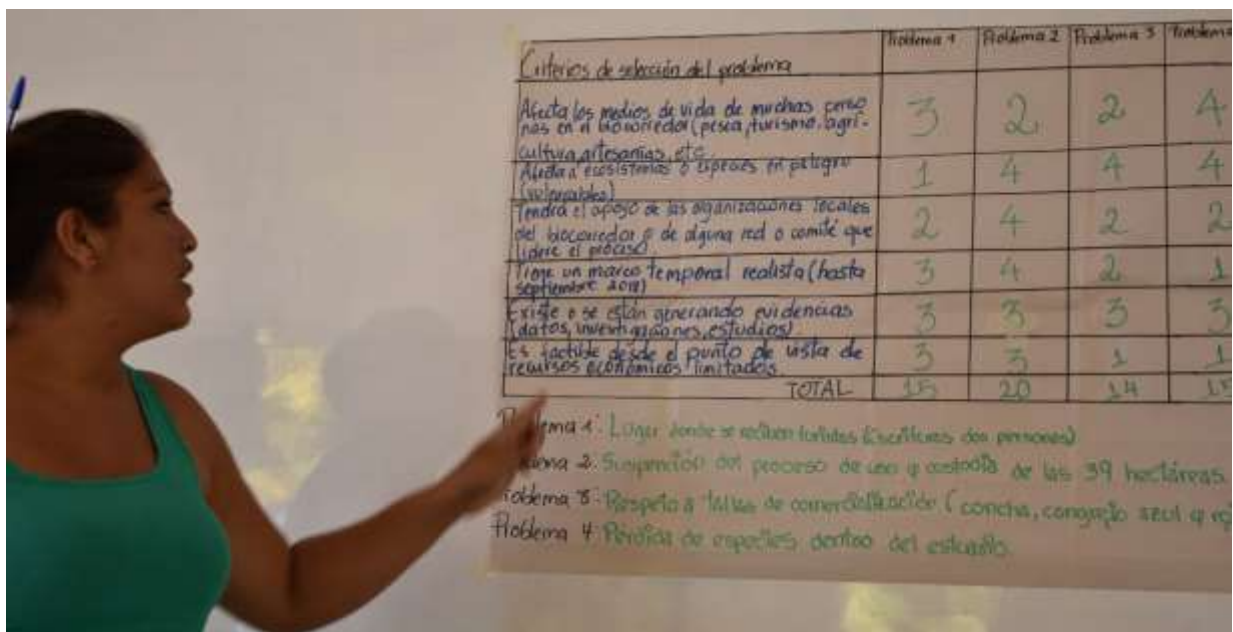 Criterios de selección del problema Problema 1 Problema 2 Problema 3 Problema
Afecta los medios de vida de muchas perso
nas en el biocorredor (pesca, turismo, agri- 3 2 2 4
cultura, artesanías, etc.
Afecta a ecosistemas o especies en peligro 1 4 4 4
(vulnerables)
Tendrá el apoyo de las organizaciones locales
del biocorredor o de alguna red o comité que 2 4 2 2
lidere el proceso
Tiene un marco temporal realista (hasta 3 4 2 1
septiembre 2018)
Existe o se están generando evidencias 3 3 3 3
(datos, investigaciones, estudios)
Es factible desde el punto de vista de 3 3 1 1
recursos económicos limitados
TOTAL 15 20 14 15
Problema 1: Lugar donde se reciben turistas
Problema 2: Suspención del proceso de uso y custodia de las 39 hectáreas.
Problema 3: Respeto a tallas de comercialización (concha, cangrejo azul y
Problema 4: Pérdida de especies dentro del estuario.